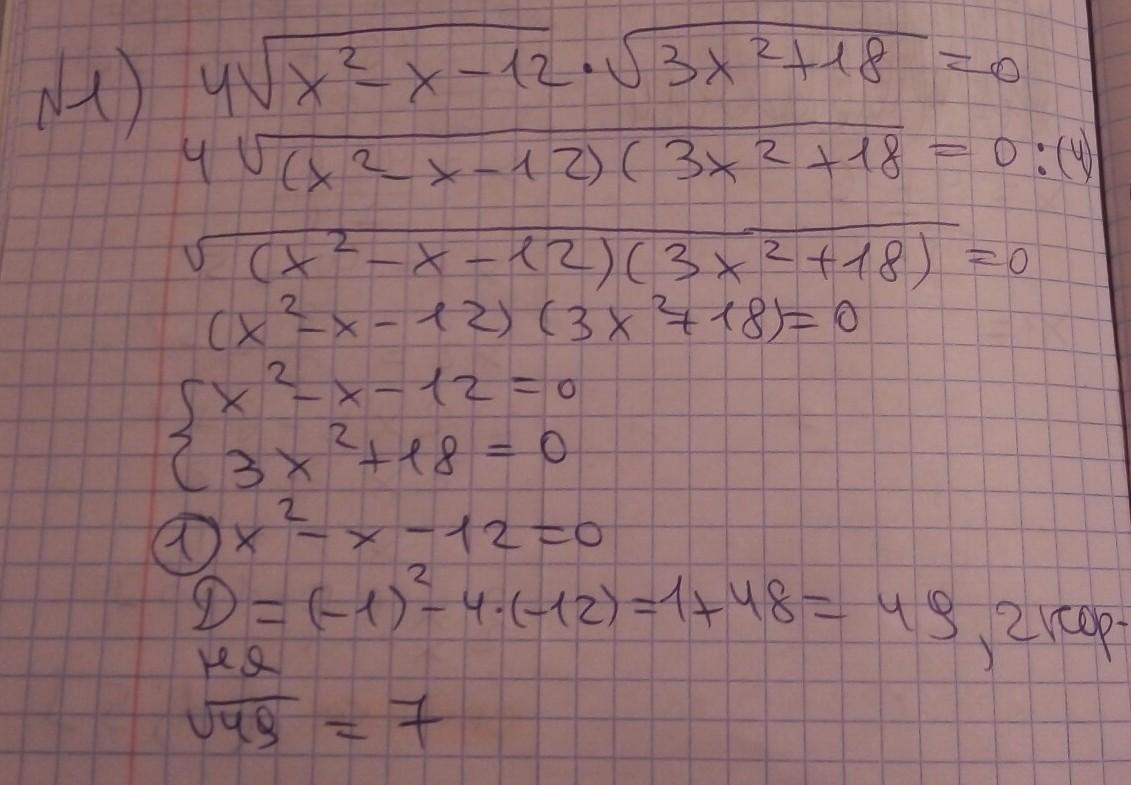 №1) 4√(x² - x - 12) · √(3x² + 18) = 0
4√((x² - x - 12)(3x² + 18 = 0 :(4)
√((x² - x - 12)(3x² + 18)) = 0
(x² - x - 12)(3x² + 18) = 0
{ x² - x - 12 = 0
{ 3x² + 18 = 0
① x² - x - 12 = 0
D = (-1)² - 4·(-12) = 1 + 48 = 49, 2 кор-
ня
√49 = 7